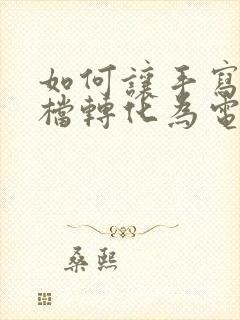 如何讓手寫
檔轉化為電
桑熙